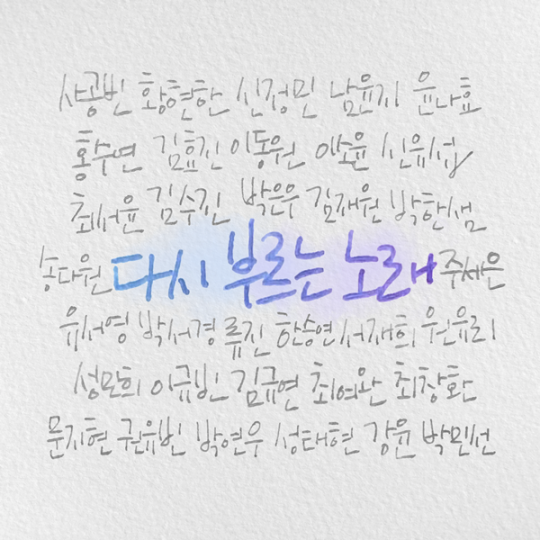 사공빈 황현한 신정민 남윤지 윤나효
홍수연 김효진 이동원 이소윤 신유섭
최서윤 김수진 박은우 김재원 박한샘
송다원 다시 부르는 노래 주세은
유서영 박서경 류진 한승연 서재희 원유리
성민희 이규빈 김규연 최여완 최창환
문지현 권유빈 박현우 성태현 강윤 박민선